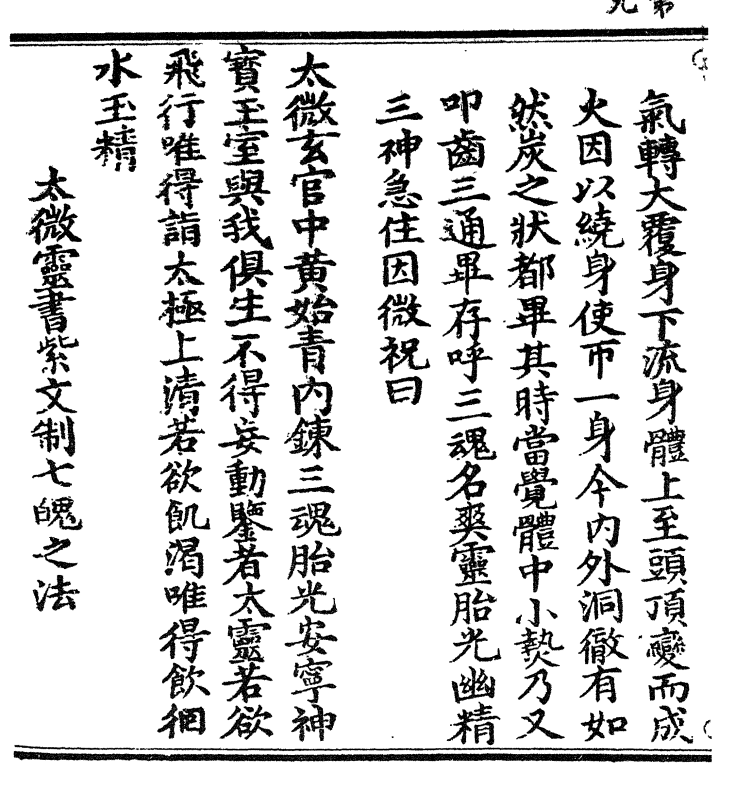 氣轉大覆身下流身體上至頭頂變而成
火因以繞身使帀一身令內外洞徹有如
然炭之狀都畢其時當覺體中小熱乃又
叩齒三通畢存呼三魂名爽靈胎光幽精
三神急住因微祝曰
太微玄宮中黃始青內鍊三魂胎光安寧神
寶玉室與我俱生不得妄動鑒者太靈若欲
飛行唯得詣太極上清若欲飢渴唯得飲徊
水玉精
太微靈書紫文制七魄之法